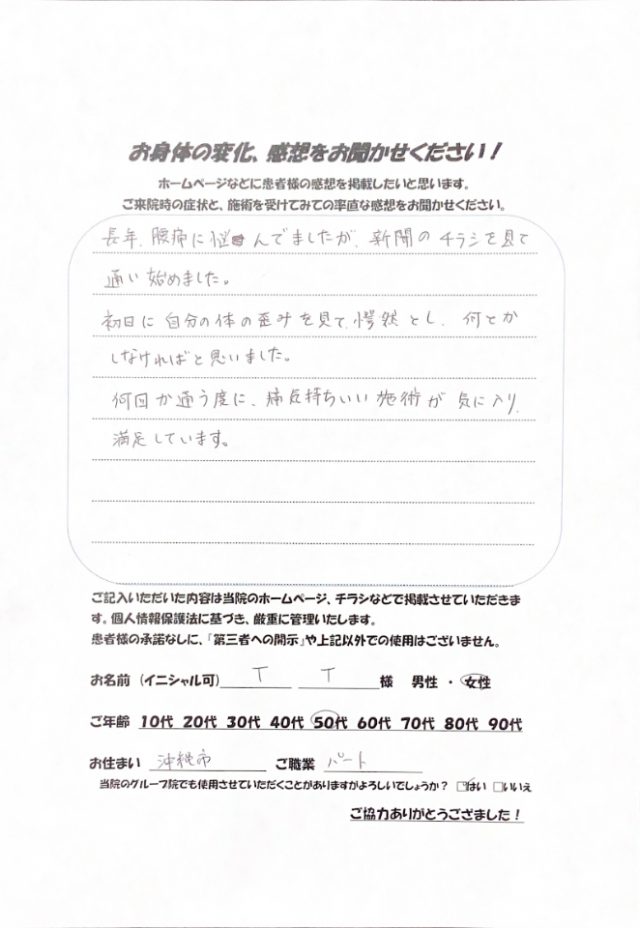 お身体の変化、感想をお聞かせください!
ホームページなどに患者様の感想を掲載したいと思います。
ご来院時の症状と、施術を受けてみての率直な感想をお聞かせください。
長年、腰痛に悩んでましたが、新聞のチラシを見て
通い始めました。
初日に自分の体の歪みを見て、愕然とし、何とか
しなければと思いました。
何回か通う度に、痛気持ちいい施術が気に入り、
満足しています。
ご記入いただいた内容は当院のホームページ、チラシなどで掲載させていただきま
す。個人情報保護法に基づき、厳重に管理いたします。
患者様の承諾なしに、『第三者への開示』や上記以外での使用はございません。
お名前(イニシャル可) T T 様 男性 ・ 女性
ご年齢 10代 20代 30代 40代 50代 60代 70代 80代 90代
お住まい 沖縄市 ご職業 パート
当院のグループ院でも使用させていただくことがありますがよろしいでしょうか? □はい □いいえ
ご協力ありがとうござました!